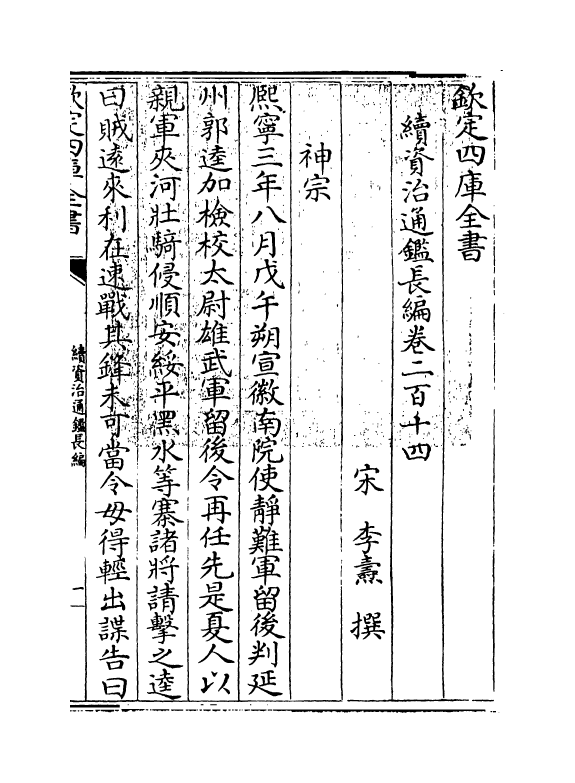 欽定四庫全書
續資治通鑑長編卷二百十四
宋 李燾 撰
神宗
熙寧三年八月戊午朔宣徽南院使靜難軍留後判延
州郭逵加檢校太尉雄武軍留後令再任先是夏人以
親軍夾河壯騎侵順安綏平黑水等寨諸將請擊之逵
曰賊遠來利在速戰其鋒未可當令毋得輕出諜告曰
欽定四庫全書
續資治通鑑長編
一